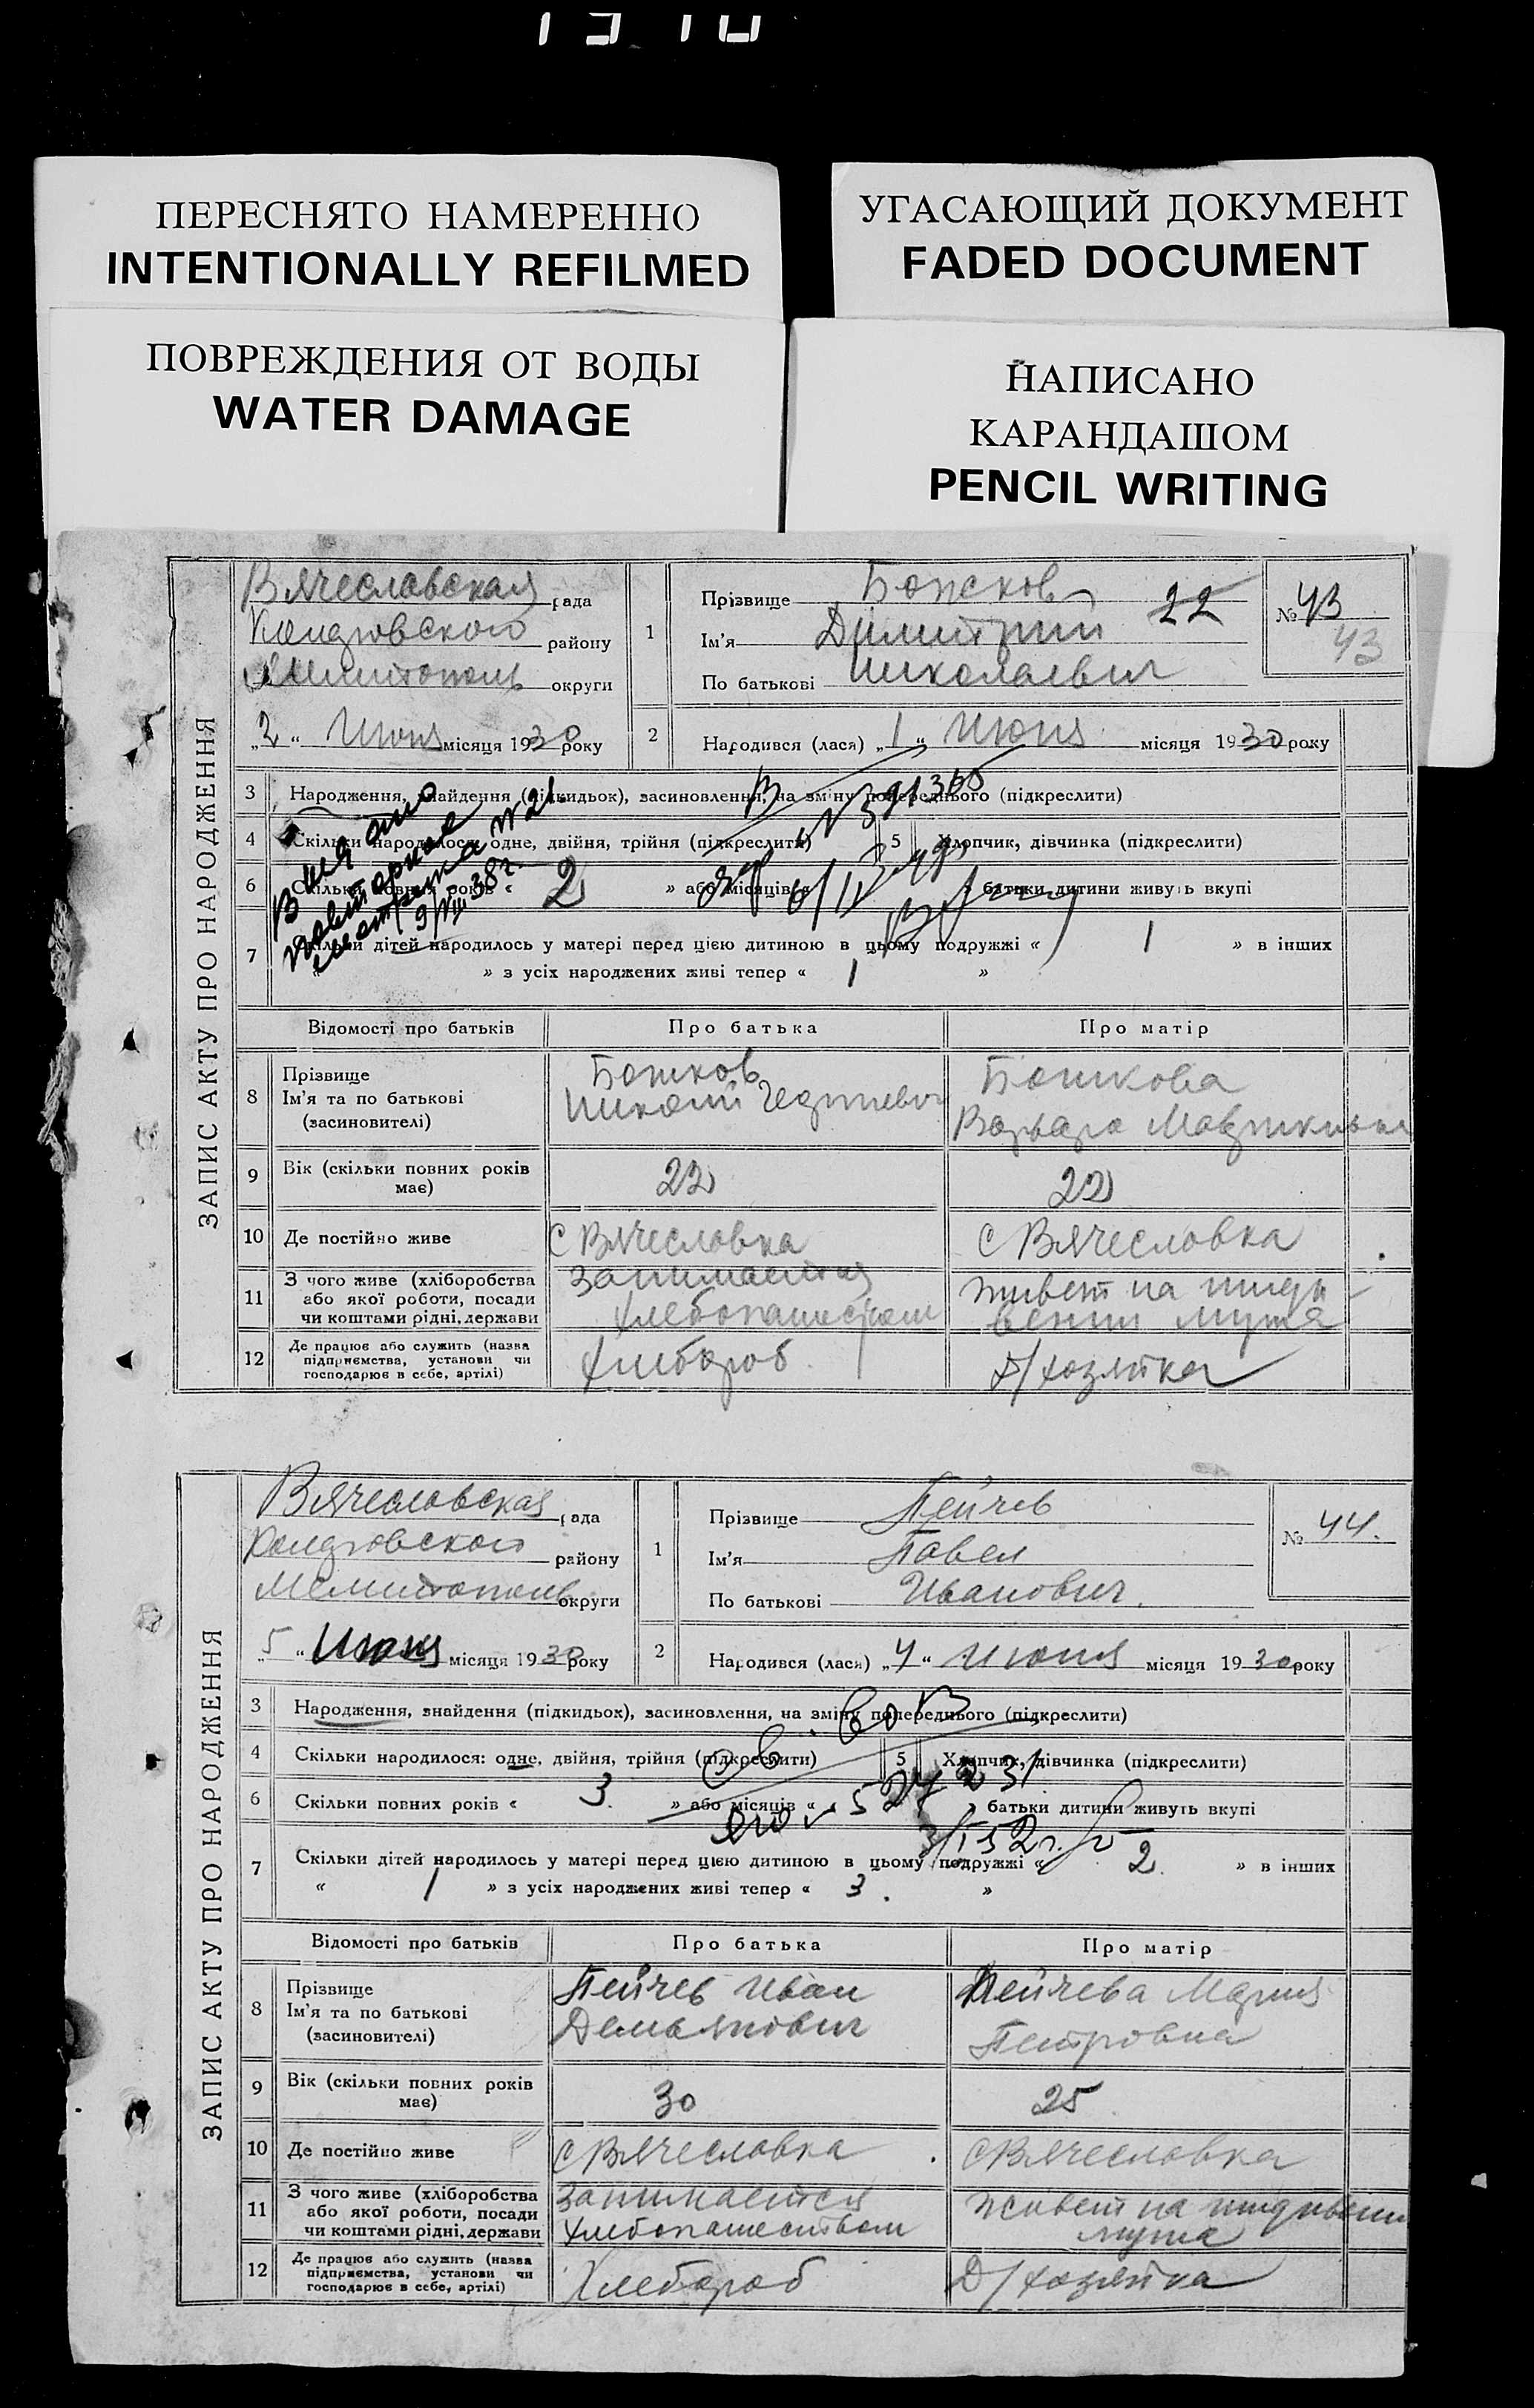 ПЕРЕСНЯТО НАМЕРЕННО
INTENTIONALLY REFILMED
УГАСАЮЩИЙ ДОКУМЕНТ
FADED DOCUMENT
ПОВРЕЖДЕНИЯ ОТ ВОДЫ
WATER DAMAGE
НАПИСАНО
КАРАНДАШОМ
PENCIL WRITING
ЗАПИС АКТУ ПРО НАРОДЖЕННЯ
Вячеславская рада
району
округи
„2“ Июня місяця 1930 року
1
Прізвище Божков 22
Ім'я Димитрий
По батькові Николаевич
№ 43
43
2 Народився (лася) „1“ Июня місяця 1930 року
3 Народження, знайдення (підкидьок), засиновлення, на зміну попереднього (підкреслити)
4 Скільки народилося: одне, двійня, трійня (підкреслити) 5 Хлопчик, дівчинка (підкреслити)
6 Скільки повних років « 2 » або місяців « » батьки дитини живуть вкупі
7 Скільки дітей народилось у матері перед цією дитиною в цьому подружжі « 1 » в інших
« » з усіх народжених живі тепер « 1 »
Відомості про батьків Про батька Про матір
8 Прізвище
Ім'я та по батькові
(засиновителі)
Божков
Божкова
9 Вік (скільки повних років має) 22 22
10 Де постійно живе с Вячесловка с Вячесловка
11 З чого живе (хліборобства або якої роботи, посади чи коштами рідні, держави
Занимается хлебопашеством
живет на иждивении мужа
12 Де працює або служить (назва підприємства, установи чи господарює в себе, артілі)
Хлебороб
Д/хозяйка
ЗАПИС АКТУ ПРО НАРОДЖЕННЯ
Вячесловская рада
району
Мелитополь округи
„5“ Июня місяця 1930 року
1
Прізвище Пейчев
Ім'я Павел
По батькові Иванович.
№ 44.
2 Народився (лася) „4“ Июня місяця 1930 року
3 Народження, знайдення (підкидьок), засиновлення, на зміну попереднього (підкреслити)
4 Скільки народилося: одне, двійня, трійня (підкреслити) 5 Хлопчик, дівчинка (підкреслити)
6 Скільки повних років « 3. » або місяців « » батьки дитини живуть вкупі
7 Скільки дітей народилось у матері перед цією дитиною в цьому подружжі « 2. » в інших
« 1 » з усіх народжених живі тепер « 3. »
Відомості про батьків Про батька Про матір
8 Прізвище
Ім'я та по батькові
(засиновителі)
Пейчев Иван
Демьянович
Пейчева Мария
Петровна
9 Вік (скільки повних років має) 30 25
10 Де постійно живе с Вячесловка с Вячесловка
11 З чого живе (хліборобства або якої роботи, посади чи коштами рідні, держави
Занимается
хлебопашеством
живет на иждивении
мужа
12 Де працює або служить (назва підприємства, установи чи господарює в себе, артілі)
Хлебороб
Д/хозяйка